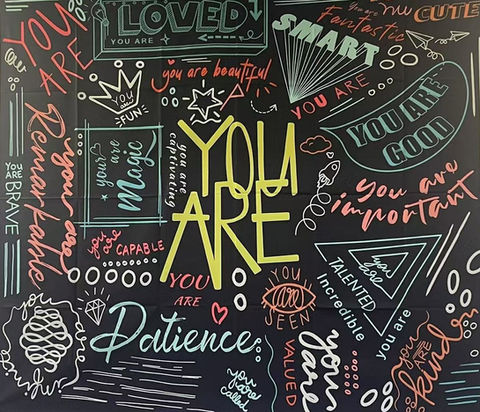 YOU
ARE
LOVED
YOU ARE
you are
Fantastic
you are
CUTE
SMART
YOU ARE
you are beautiful
you
are
FUN
YOU ARE
GOOD
you are
Remarkable
your are
Magic
you are
captivating
YOU
ARE
YOU
ARE
BRAVE
you are
important
you
are
CAPABLE
YOU
ARE
YOU
are
SEEN
you
are
TALENTED
you are
incredible
Patience
you are
VALUED
you
ARE
kind
you are
called